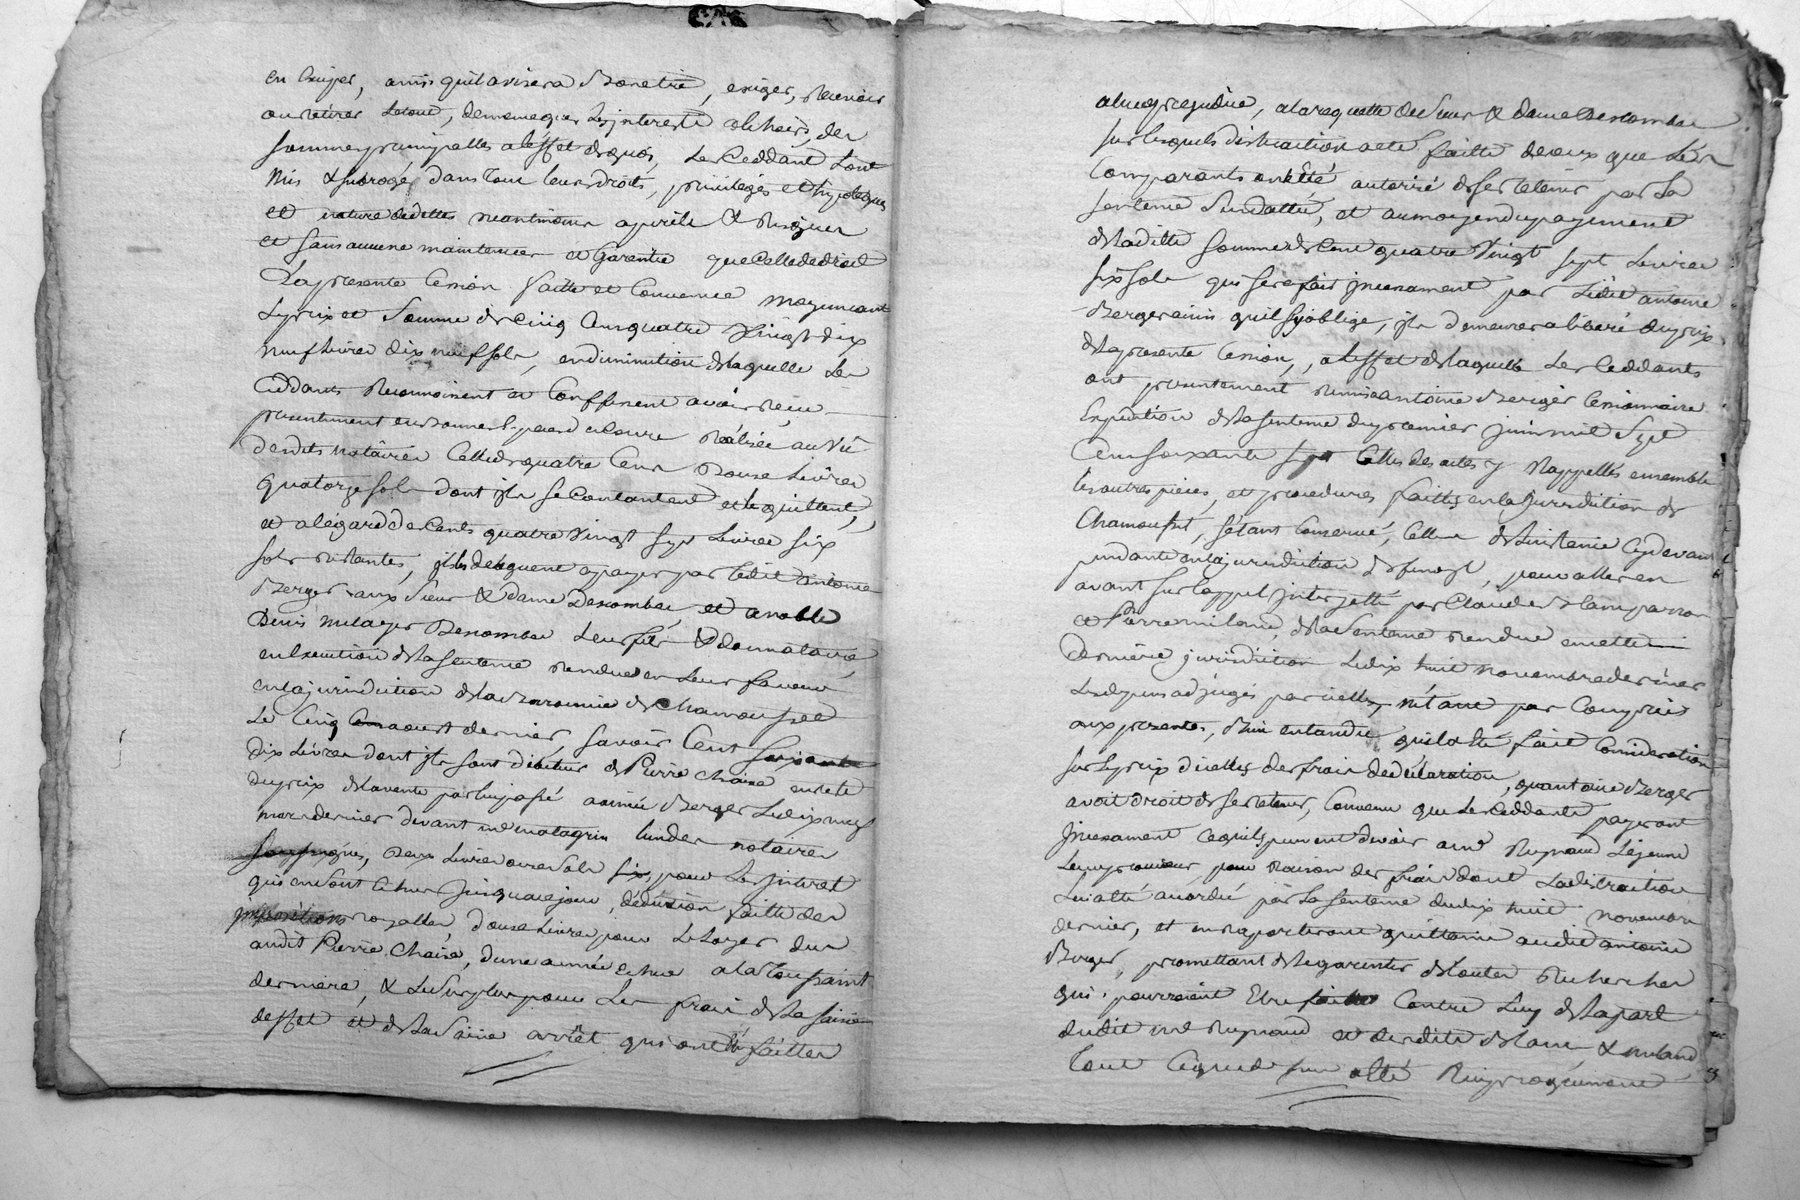 en Exiger, ainsi quil avisera Bon etre, exiger, Recevoir
ou Retirer Letout, dememeque Les jnterests dicheus, des
sommes principalles aleffet dequoi, Les Ceddants Lont
mis & subrogé dans tous leurs droits, privileges et hypoteques
et nature dedettes neantmoins aperils & Risques
et sans aucune maintenue et Garentie que Celle de droit
La presente Cession faitte et Convenue moyennant
Le prix et Somme de Cinq Cens quatre Vingt dix
neuf Livres dix neuf sols, en diminution de laquelle Les
Ceddants Reconnoissent et Confessent avoir Reçu
presentement en Bonnes Especes de Cours Réalisée au Vû
desdits notaires Celle de quatre Cens Douze Livres
quatorze sols dont jls se Contantent et le quittent,
et alégard des Cents quatre Vingt sept Livres six
sols Restantes, jls deleguent apayer par Ledit antoine
Berger aux Sieur & dame Descombes et a noble
Denis Descombes Leur fils & donnataire
en Execution de la sentence Rendue en Leur faveur
en la jurisdiction de la Baronnie de Chamousset
Le Cinq aoust dernier, savoir Cent soixante
dix Livres dont jls sont débiteurs de Pierre Chaise en reste
du prix de la vente par luy passé aaimée Berger Le dix neuf
mars dernier devant me matagrin lundes notaires
soussignés, Deux Livres onze sols six, pour Les jnterest
qui en sont Echus jusqua ce jour, déduction faitte des
jmpositions royalles, douze Livres pour Le Loyer dus
audit Pierre Chaise, dune année Echue a la Toussaint
derniere, & Le Surplus pour Les frais de la saisie
deffet et de la Saisie arrêt qui ont été faittes
alueq prejudice, a la requette des Sieur & dame Descombes
sur lesquels distraction a eté faitte de ceux que Les
Comparants ont été autorisé de se retenir par La
sentence Susdattée, et aumoyen du payement
de la ditte somme de Cent quatre Vingt sept Livres
six sols qui sera fait jncessament par Ledit antoine
Berger ainsi quil sy oblige, jls demeurera liberé du prix
de la presente Cession, a leffet de laquelle Les Ceddants
ont presentement Remis a antoine Berger Cessionnaire
Expedition de la sentence du premier juin mil Sept
Cens soixante sept Celles des actes y Rappellés ensemble
les autres pieces, et procedures faittes en la jurisdiction de
Chamousset, sétant Conservé, Celles de Linstance Cydevant
pendante en la jurisdiction de , pour aller en
avant sur lappel jnterjetté par Claude
et Pierre miland, de la Sentence Rendue en cette
derniere jurisdiction Le dix huit novembre dernier
Les depens adjugés par icelle, nétant pas Compris
aux presentes, Bien entendu quil a été fait Consideration
sur Le prix dicelles des frais de déclaration, quantoine Berger
avoit droit de se retenir, Convenu que Les Ceddants payeront
jncessament Ce quils peuvent devoir ame Reynaud Lejeune
Leur procureur, pour Raison des frais dont La distraction
Lui a été accordée par La sentence du dix huit novembre
dernier, et en raporteront quittance audit antoine
Berger, promettant de le garentir de toutes Recherches
qui pourroient Etre faittes Contre Luy de la part
dudit me Reynaud et desdits & miland
Tout Ceque dessus a été Reciproquement